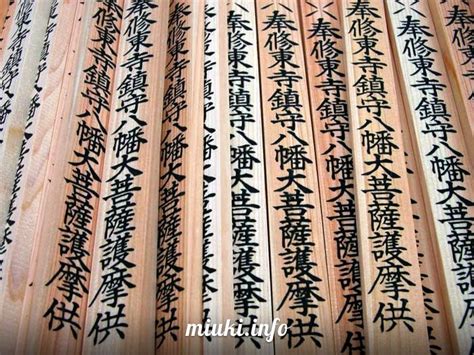 奉修東寺鎮守八幡大菩薩護摩供
奉修東寺鎮守八幡大菩薩護摩供
奉修東寺鎮守八幡大菩薩護摩供
奉修東寺鎮守八幡大菩薩護摩供
修東寺鎮守八幡大菩薩護摩供
修東寺鎮守八幡大菩薩護摩供
東寺鎮守八幡大菩薩護摩供
寺鎮守八幡大菩薩護摩供
miuki.info